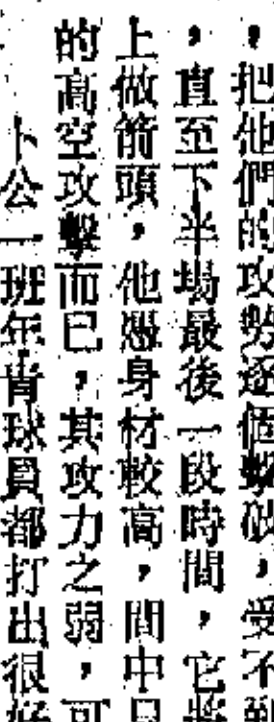 ，把他們的攻勢逐個擊破，受不到
，直至下半場最後一段時間，它將
上做箭頭，他憑身材較高，間中
的高空攻擊而已，其攻力之弱，可
卜公一班年青球員都打出很好